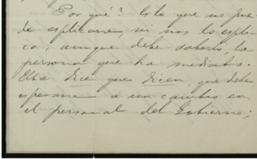 Por qué? Esto que no pue
de esplicarse, si nos lo espli
ca; aunque debe saberlo, la
persona que ha mediado.
Ella dice que dicen que debe
esperarse a un cambio en
el personal del Gobierno;